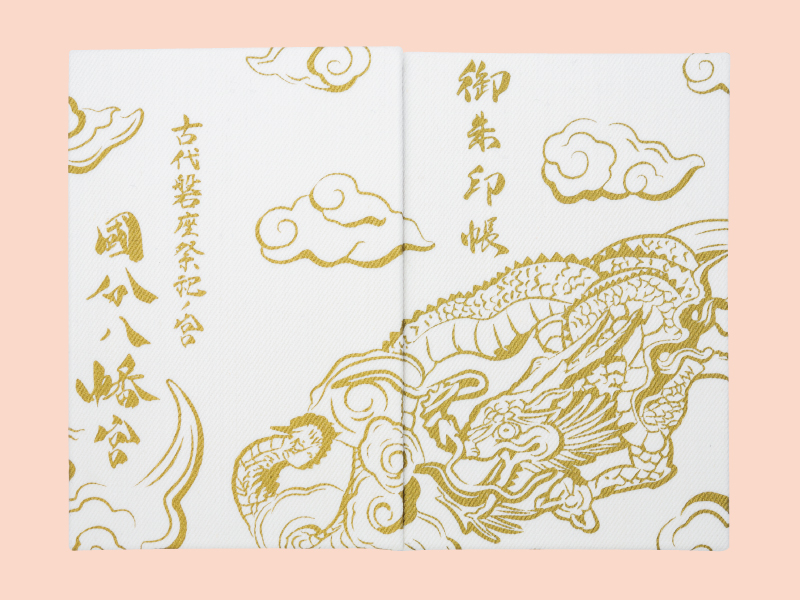 御朱印帳
古代磐座祭祀ノ宮
國分八幡宮